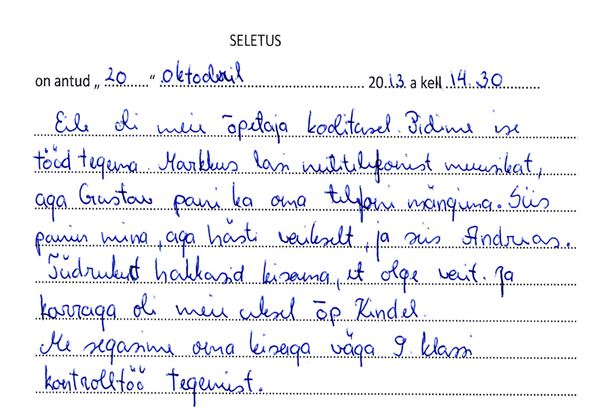 SELETUS
on antud „ 20 “ oktoobril 20 13. a kell 14.30
Eile oli meie õpetaja koolitusel. Pidime ise
tööd tegema. Markkus lasi mititelefonist muusikat,
aga Gustav pani ka oma telfoni mängima. Siis
panin mina, aga hästi vaikselt, ja siis Andreas.
Tüdrukud hakkasid kisama, et olge vait. Ja
korraga oli meie uksel õp Kindel.
Me segasime oma kisaga väga 9. klassi
kontrolltöö tegemist.